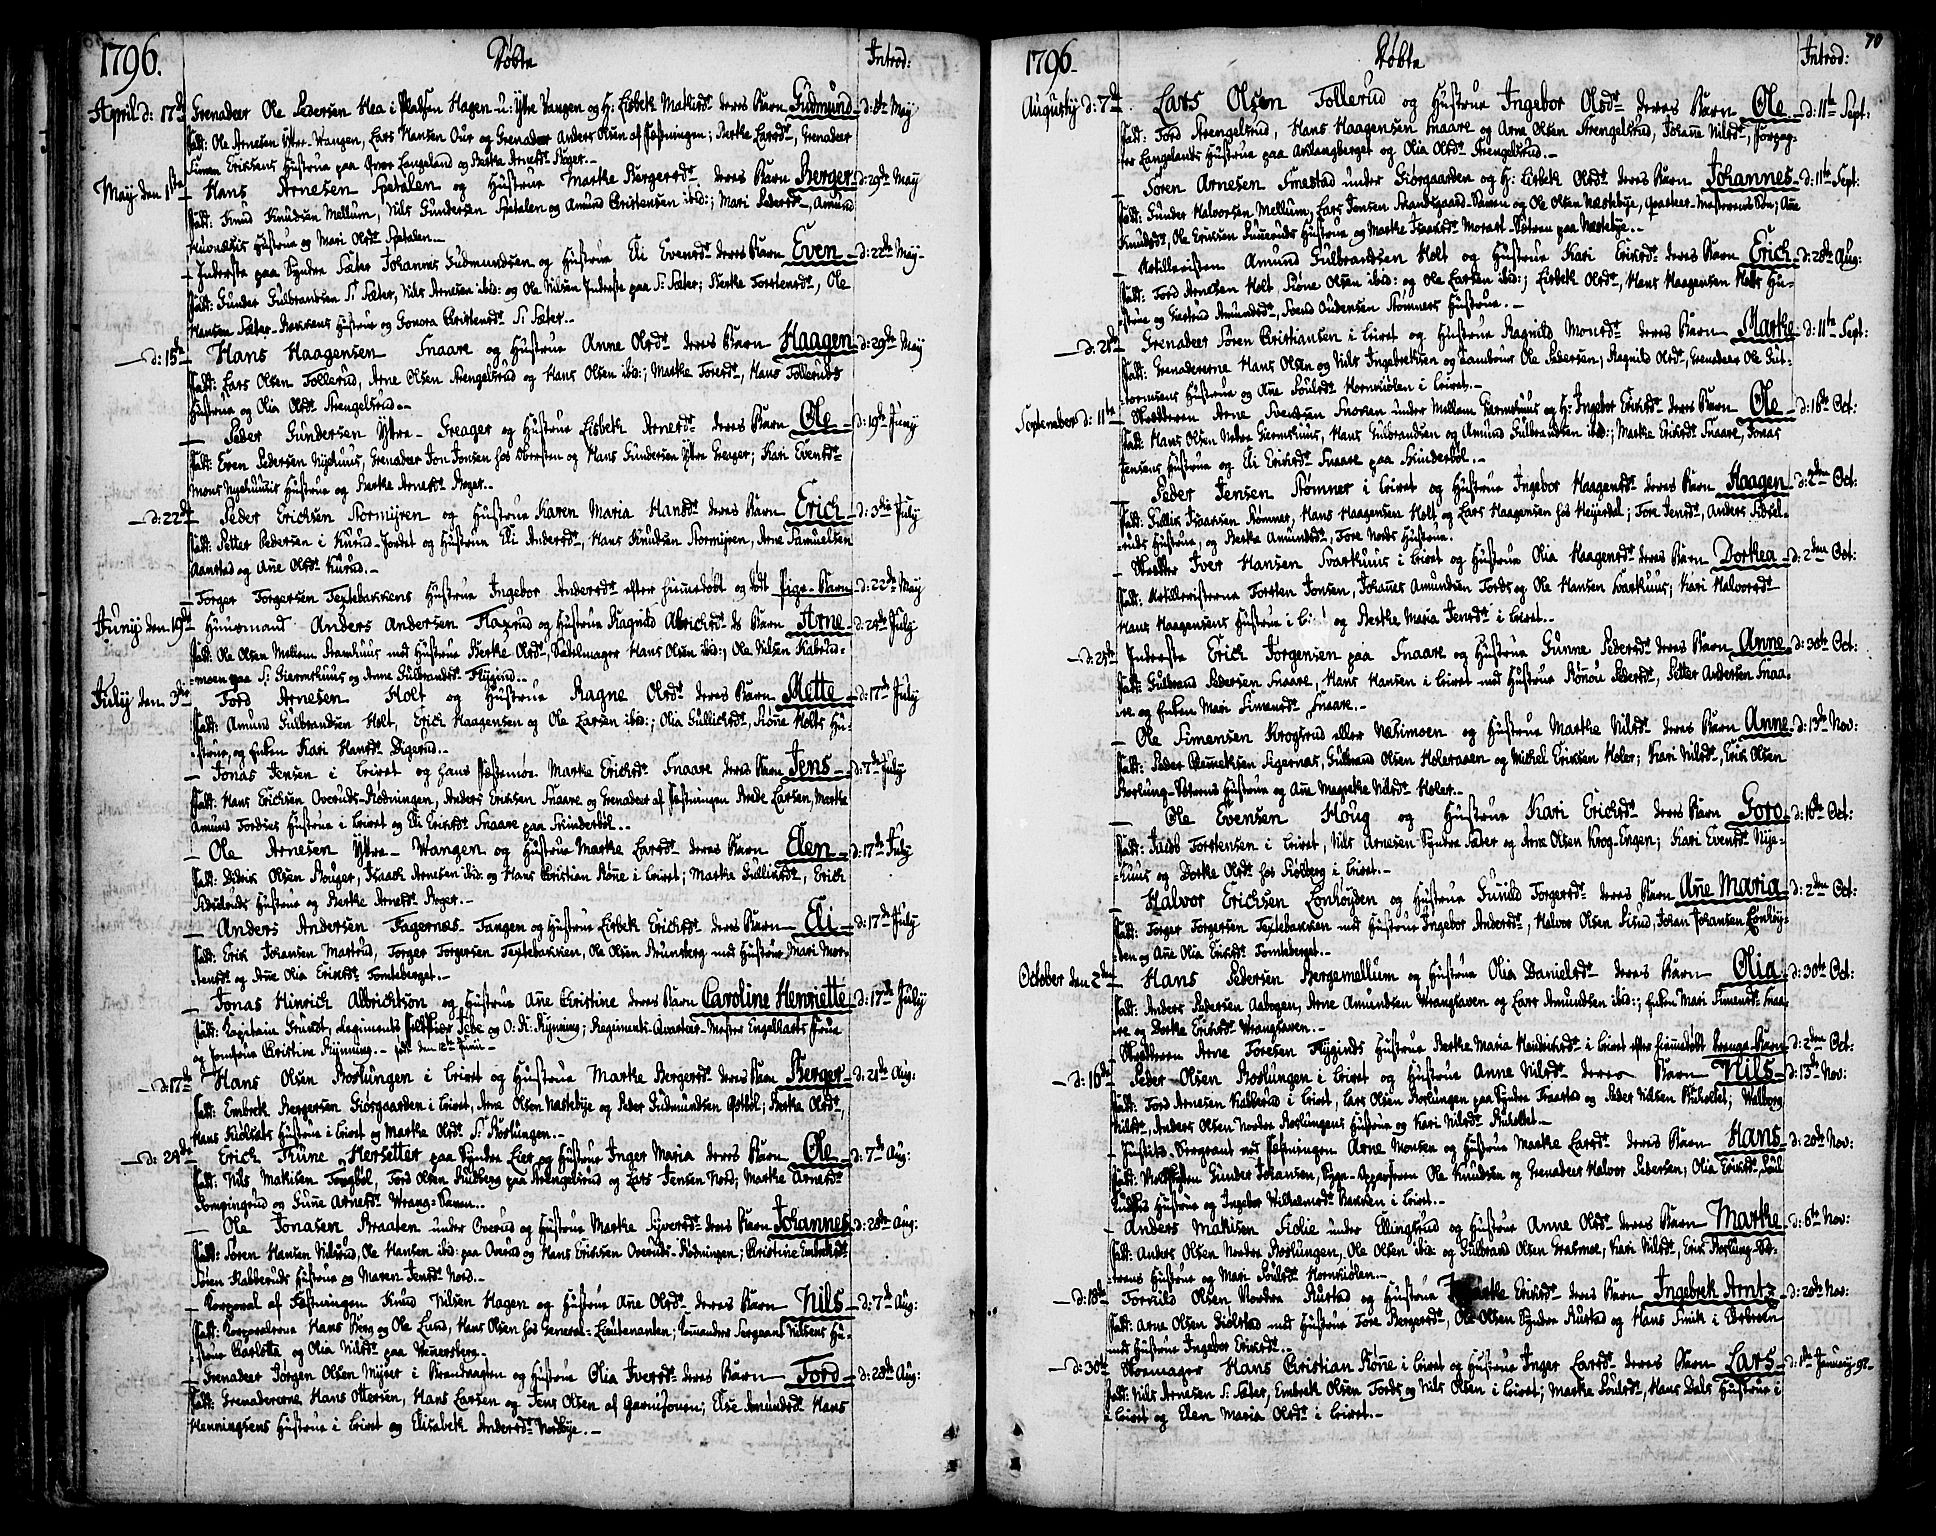 1796. Døbte Introd:
April d: 17de Grenadeer Ole Pedersen Hea i Pladsen Hagen u: Ytre Vangen og H: Lisbek Mathisd: deres Barn Gudmund d: 8de May
Fadd: Ole Arnesen Ytter-Vangen, Lars Hansen Our og Grenadeer Anders Olsen af Fæstningen; Berthe Larsd:, Grenadeer
Simon Erichsens Hustrue paa Langeland og Berthe Arnesd: Roger.
May den 1ste Hans Arnesen Spetalen og Hustrue Marthe Bergersd: deres Barn Berger d: 29de May
Fadd: Knud Knudsen Mellum, Nils Gundersen Spetalen og Amund Christensen ibid:; Mari Pedersd:, Amund
Hustrue og Mari Olsd: Spetalen.
Inderste paa Syndre Sæter Johannes Gudmundsen og Hustrue Eli Evensd: deres Barn Even d: 22de May
Fadd: Gunder Gulbrandsen S: Sæter, Nils Arnesen ibid: og Ole Nilsen Inderste paa S: Sæter; Berthe Torstensd:, Ole
Hansen Sæter-Bakkens Hustrue og Gonora Christensd: S: Sæter.
d: 15de Hans Haagensen Snaare og Hustrue Anne Olsd: deres Barn Haagen d: 29de May
Fadd: Lars Olsen Tollerud, Arne Olsen Strengelsrud og Hans Olsen ibid:; Marthe Toresd:, Hans Tolleruds
Hustrue og Olia Olsd: Strengelsrud.
Peder Gundersen Ytre-Greager og Hustrue Lisbek Arnesd: deres Barn Ole d: 19de Juny
Fadd: Even Pedersen Nyehuus, Grenadeer Jon Jonsen hos Obersten og Hans Gundersen Ytre Greger; Kari Evensd:
Mons Nyehuusis Hustrue og Berthe Arnesd: Roger.
d: 22de Peder Erichsen Stormyren og Hustrue Karen Maria Hansd: deres Barn Erich d: 3die July
Fadd: Petter Pedersen i Kurud-Jordet og Hustrue Eli Andersd:, Hans Knudsen Stormyren, Arne Samuelsen
Aanstad og Ane Olsd: Kurud.
Torger Torgersen Textebakkens Hustrue Ingebor Andersd: efter hiemedøbt og død Pige-Barn d: 22de May
Juny den 19de Huusmand Anders Andersen Flaxrud og Hustrue Ragnild Albrichsd: ds Barn Arne d: 24de July
Fadd: Ole Olsen Mellem Starnhuus med Hustrue Berthe Olsd:, Sadelmager Hans Olsen ibid:, Ole Nilsen Kabrud-
moen paa S: Giernshuus og Anne Gulbrandsd: Flygind.
July den 3die Tord Arnesen Holt og Hustrue Ragne Olsd: deres Barn Mette d: 17de July
Fadd: Amund Gulbrandsen Holt, Erich Haagensen og Ole Larsen ibid:; Olia Gullichsd:, Støne Holts Hu-
strue, og Enken Kari Hansd: Digerud.
Jonas Jensen i Leiret og hans Fæstemøe Marthe Erichsd: Snaare deres Barn Jens d: 7de July
Fadd: Hans Erichsen Overuds-Rødningen, Anders Erichsen Snaare og Grenadeer af Fæstningen Arede Larsen, Marthe
Amund Tordses Hustrue i Leiret og Eli Erichsd: Snaare paa Skinderbøl.
Ole Arnesen Ytre-Wangen og Hustrue Marthe Larsd: deres Barn Elen d: 17de July
Fadd: Didrik Olsen Rouger, Isaach Arnesen ibid: og Hans Christian Røne i Leiret; Marthe Gullichsd:, Erich
Hustrue og Berthe Arnesd: Roger.
Anders Andersen Fagernæs-Tangen og Hustrue Lisbek Erichsd: deres Barn Eli d: 17de July
Fadd: Erik Johansen Mastrud, Torger Torgersen Textebakken, Ole Olsen Brunsberg med Hustrue Mari Mor-
tensd: og Ane Olia Erichsd: Tomteberget.
Jonas Hinrich Albrichtson og Hustrue Ane Christine deres Barn Caroline Henriette d: 17de July
Fadd: Kapitain Grundt, Regiments Feldskier Tede og O: K: Rynning; Regiments-Quarteer-Mester Engelharts Frue
og Jomfrue Christine Rynning. fødd den 12te Junii
d: 17de Hans Olsen Roslungen i Leiret og Hustrue Marthe Bergersd: deres Barn Berger d: 21de Aug:
Fadd: Embrek Bergersen Giørsgaarden i Leiret, Arne Olsen Næstebye og Peder Gudmundsen Ostbøl; Berthe Olsd:,
Hans Hustrue i Leiret og Marthe Olsd: S: Roslungen.
d: 24de Erich Thune Hersetter paa Syndre Lier og Hustrue Inger Maria deres Barn Ole d: 7de Aug:
Fadd: Nils Mathisen Tongbøl, Tord Olsen Rudberg paa Strengelsrud og Lars Jensen Nord; Marthe Arnesd:
Sompingrud og Gune Arnesd: Wrang-Saven.
Ole Jonasen Braaten under Overud og Hustrue Marthe Sjversd: deres Barn Johannes d: 28de Aug:
Fadd: Søren Hansen Nilsrud, Ole Hansen ibid: paa Overud og Hans Erichsen Overuds-Rødningen; Christine Embrichsd:
Søren Kabberuds Hustrue og Maren Jensd: Nord.
Korporal af Fæstningen Knud Nilsen Hagen og Hustrue Ane Olsd: deres Barn Nils d: 7de Aug:
Fadd: Korporalerne Hans Berg og Ole Lund, Hans Olsen hos General-Lieutenanten; Komandeer Sergeant Nilsens Hu-
strue Charlotte og Olia Nilsd: paa Wenersberg.
Grenadeer Jørgen Olsen Myset i Brandvagten og Hustrue Olia Iversd: deres Barn Tord d: 28de Aug:
Fadd: Grenadererne Hans Ottersen, Hans Larsen og Jens Olsen af Garnisonen; Else Amundsd: Hans
Henningsens Hustrue i Leiret og Elisabek Andersd: Nordbye.
1796. Døbte Introd: 70
Augusty d: 7de Lars Olsen Tollerud og Hustrue Ingebor Olsd: deres Barn Ole d: 11te Sept:
Fadd: Tord Strengelsrud, Hans Haagensen Snaare og Arne Olsen Strengelsrud, Johane Nilsd:,
Langelands Hustrue paa Aaslangberget og Olia Olsd: Strengelsrud.
Søren Arnesen Smestad under Giørgaarden og H: Lisbek Olsd: deres Barn Johannes d: 11te Sept:
Fadd: Gunder Halvorsen Mellum, Lars Jensen Strandsgaard-Saven og Ole Olsen Næstebye, Søn; Ane
Knudsd:, Ole Eriksen Hustrue og Marthe Isaachsd: Morast-Østren paa Næstebye.
Artilleristen Amund Gulbrandsen Holt og Hustrue Kari Erichsd: deres Barn Erich d: 28de Aug:
Fadd: Tord Arnesen Holt, Støne Olsen ibid: og Ole Larsen ibid:; Lisbek Olsd:, Hans Haagensen Holts Hu-
strue og Giertrud Amundsd:, Svend Gudensen Stømners Hustrue.
d: 21de Grenadeer Søren Christiansen i Leiret og Hustrue Ragnild Monsd: deres Barn Marthe d: 11te Sept:
Fadd: Grenadererne Hans Olsen og Nils Ingebrektsen og Tambour Ole Pedersen; Ragnild Olsd:, Grenadeer Ole Gut-
tormsens Hustrue og Ane Poulsd: Hornkiølen i Leiret.
September d: 11te Skredderen Arne Svendsen Snoren under Mellem Giermshuus og H: Ingebor Erichsd: deres Barn Ole d: 16de Oct:
Fadd: Hans Olsen Nedre Giermshuus, Hans Gulbrandsen og Amund Gulbrandsen ibid:; Marthe Erichsd: Snaare, Jonas
Jensens Hustrue og Eli Erichsd: Snaare paa Skinderbøl.
Peder Jensen Stømner i Leiret og Hustrue Ingebor Haagensd: deres Barn Haagen d: 2den Oct:
Fadd: Gullik Isaaksen Stømner, Hans Haagensen Holt og Lars Haagensen hos Heyerdal; Tore Jensd:, Anders Sidsel-
ruds Hustrue, og Berthe Amundsd:, Tore Nords Hustrue.
Skredder Iver Hansen Svarthuus i Leiret og Hustrue Olia Haagensd: deres Barn Dorthea d: 2den Oct:
Fadd: Artilleristerne Torsten Jonsen, Johanes Amundsen Tords og Ole Hansen Svarthuus; Kari Halvorsd:
Hans Haagensens Hustrue i og Berthe Maria Jensd: i Leiret.
d: 25de Inderste Erich Jørgensen paa Snaare og Hustrue Gunne Pedersd: deres Barn Anne d: 30te Oct:
Fadd: Gulbrand Pedersen Snaare, Hans Hansen i Leiret med Hustrue Rønou Pedersd:, Petter Andersen Snaa-
re og Enken Mari Simensd: Snaare.
Ole Simensen Krogsrud eller Næsimoen og Hustrue Marthe Nilsd: deres Barn Anne d: 13de Nov:
Fadd: Peder Clemetsen Sigernæs, Gulbrand Olsen Holeraaen og Mickel Erichsen Holer; Kari Nilsd:, Erik Olsen
Roslung-Østrens Hustrue og Ane Magrethe Nilsd: Holer.
Ole Evensen Houg og Hustrue Kari Erichsd: deres Barn Goro d: 16de Oct:
Fadd: Jacob Torstensen i Leiret, Nils Arnesen Syndre Sæter og Arne Olsen Krog-Engen; Kari Evensd: Nye-
huus og Dorthe Olsd: hos Stølberg i Leiret.
Halvor Erichsen Lonhøyden og Hustrue Gunild Torgersd: deres Barn Ane Maria d: 2den Oct:
Fadd: Torger Torgersen Textebakken med Hustrue Ingebor Andersd:, Halvor Olsen Lisud, Johan Johansen Lonhøy-
den og Ane Olia Erichsd: Tomteberget.
October den 2den Hans Pedersen Bergemellum og Hustrue Olia Danielsd: deres Barn Olia d: 30te Oct:
Fadd: Anders Pedersen Aabogen, Arne Amundsen Wranghaven og Lars Amundsen ibid:; Enken Mari Simensd: Snaa-
re og Dorthe Erichsd: Wranghaven.
Skredderen Arne Toresen Flyginds Hustrue Berthe Maria Hendrichsd: i Leiret efter hiemedøbt Drenge-Barn d: 2den Oct:
d: 16de Peder Olsen Roslungen i Leiret og Hustrue Anne Nilsd: deres Barn Nils d: 13de Nov:
Fadd: Tord Arnesen Kabberud i Leiret, Lars Olsen Roslungen paa Syndre Fraastad og Peder Nilsen Riiholtet; Walborg
Nilsd:, Anders Olsen Nordre Roslungens Hustrue og Kari Nilsd: Riiholtet.
Justits-Sergeant ved Fæstningen Arne Monsen og Hustrue Marthe Larsd: deres Barn Hans d: 20de Nov:
Fadd: Gunder Johansen, Ole Knudsen og Grenadeer Halvor Pedersen; Olia Erichsd: Poul
Hustrue og Ingebor Wilhelmsd: Bakken i Leiret.
Anders Mathisen Holie under Ellingsrud og Hustrue Anne Olsd: deres Barn Marthe d: 6te Nov:
Fadd: Anders Olsen Nordre Roslungen, Ole Olsen ibid: og Gulbrand Olsen Grasmoe, Kari Nilsd:, Erik Roslung-Øs-
trens Hustrue og Mari Poulsd: Hornkiølen.
d: 18de Torkild Olsen Nordre Rustad og Hustrue Erichsd: deres Barn Ingebrek Arnt d: 20de Nov:
Fadd: Arne Olsen Siølstad med Hustrue Tore Bergersd:, Ole Olsen Syndre Rustad og Hans Smik i
med Hustrue Ingebor Erichsd:.
d: 30te Skoemager Hans Christian Røne i Leiret og Hustrue Inger Larsd: deres Barn Lars d: 1ste January 97
Fadd: Nils Arnesen S: Sæter, Embrek Olsen Tords og Nils Olsen i Leiret; Marthe Poulsd:, Hans Dals Hustrue i
Leiret og Elen Maria Olsd: i Leiret.